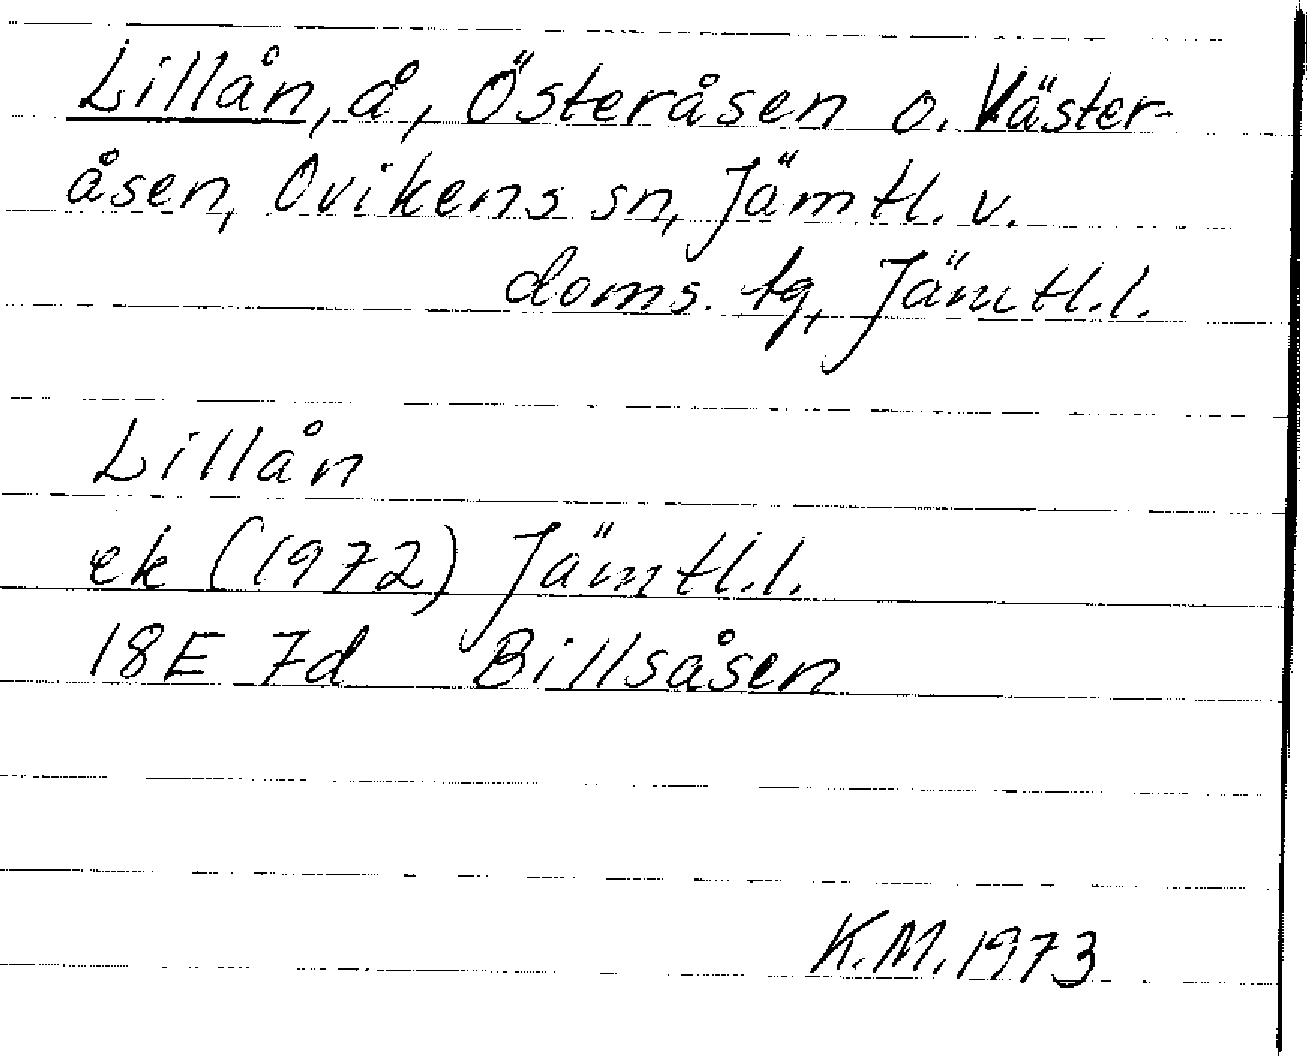 Lillån, å, Österåsen o. Väster-
åsen, Ovikens sn, Jämtl. v.
doms. tg, Jämtl.l.
Lillån
ek (1972) Jämtl.l.
18E 7d Billsåsen
K.M. 1973